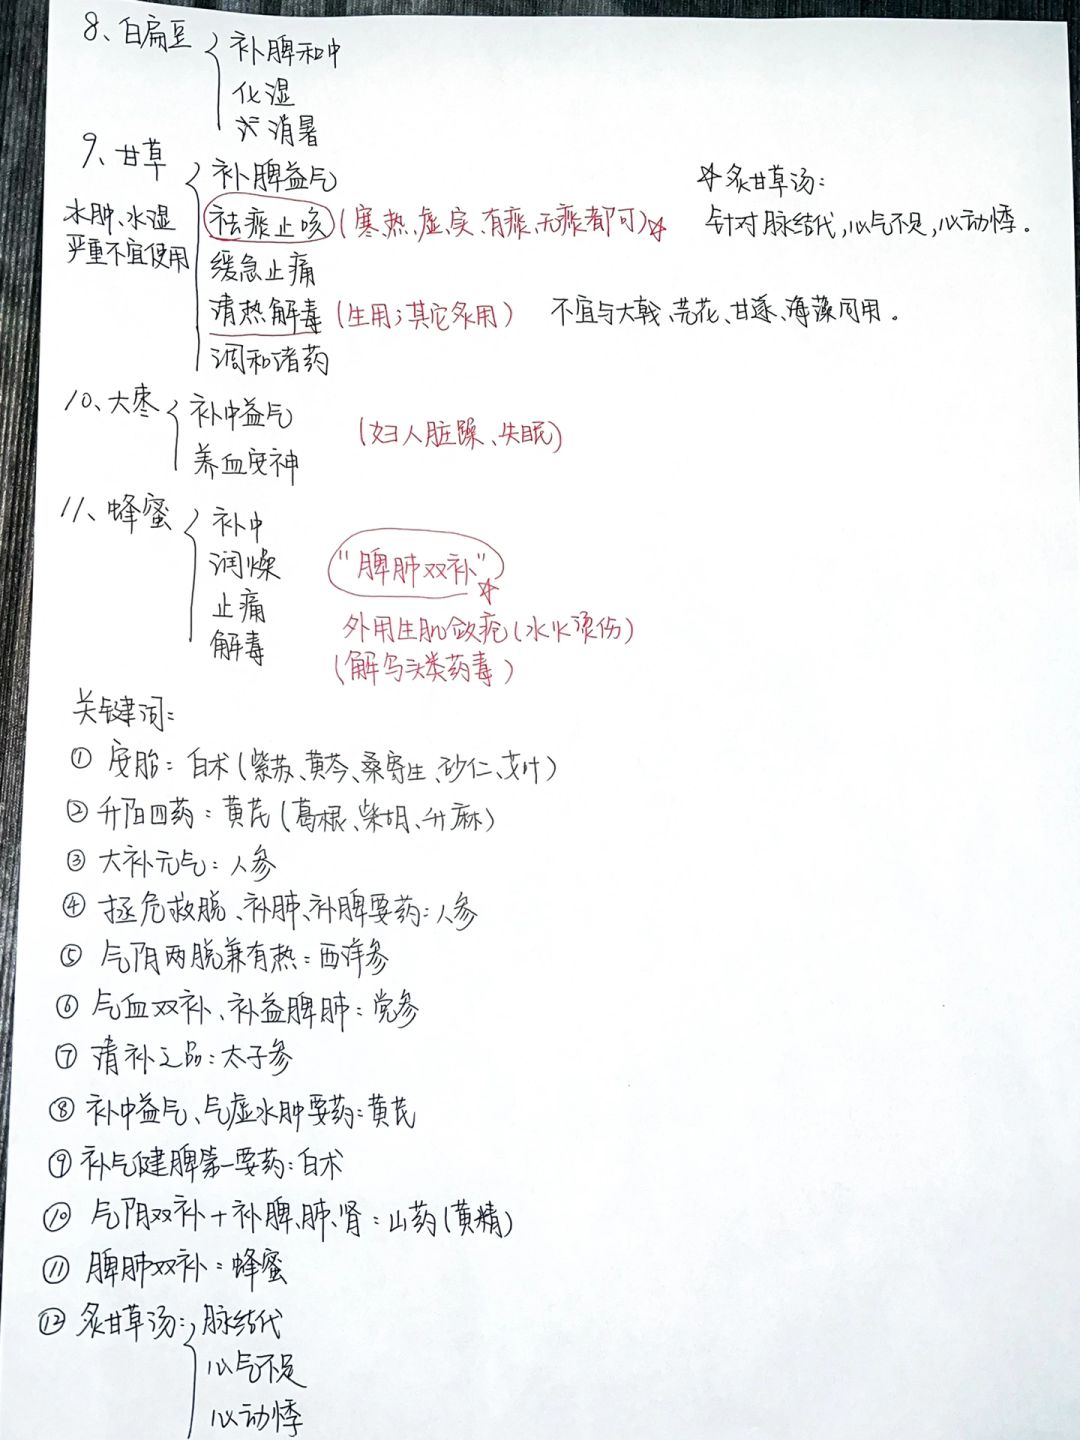 8、白扁豆
补脾和中
化湿
消暑
9、甘草
水肿、水湿
严重不宜使用
补脾益气
祛痰止咳(寒、热、虚、实、有痰、无痰都可)☆
缓急止痛
清热解毒(生用;其它炙用)
调和诸药
☆炙甘草汤:
针对脉结代,心气不足,心动悸。
不宜与大戟、芫花、甘遂、海藻同用。
10、大枣
补中益气
养血安神
(妇人脏躁、失眠)
11、蜂蜜
补中
润燥
止痛
解毒
"脾肺双补"☆
外用生肌敛疮(水火烫伤)
(解乌头类药毒)
关键词:
① 安胎:白术(紫苏、黄芩、桑寄生、砂仁、艾叶)
② 升阳四药:黄芪(葛根、柴胡、升麻)
③ 大补元气:人参
④ 拯危救脱、补肺、补脾要药:人参
⑤ 气阴两脱兼有热:西洋参
⑥ 气血双补、补益脾肺:党参
⑦ 清补之品:太子参
⑧ 补中益气、气虚水肿要药:黄芪
⑨ 补气健脾第一要药:白术
⑩ 气阴双补+补脾、肺、肾:山药(黄精)
⑪ 脾肺双补:蜂蜜
⑫ 炙甘草汤:脉结代
心气不足
心动悸